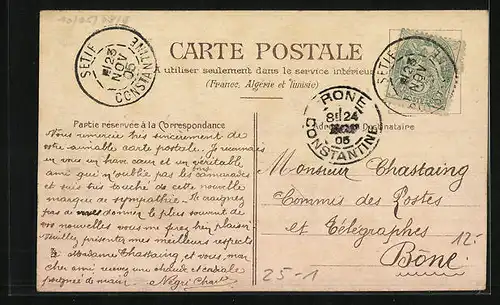 SETIF
23
NOV
05
CONSTANTINE
CARTE POSTALE
A utiliser seulement dans le service intérieur
(France, Algérie et Tunisie)
SETIF
BONE
24
05
CONSTANTINE
Partie réservée à la Correspondance
Destinataire
Vous remercie très sincèrement de
votre aimable carte postale. Je reconnais
en vous un brave cœur et un véritable
ami que n'oublie pas les bons camarades
et suis très touché de cette nouvelle
marque de sympathie. Ne craignez
pas de nous donner le plus souvent de
vos nouvelles vous me ferez bien plaisir.
Veuillez présenter mes meilleurs respects
à Madame Chastaing et vous, mon
cher ami recevez une chaude et cordiale
poignée de main. Négri
Monsieur Chastaing
Commis des Postes
et Télégraphes
Bône
12.-
25-1